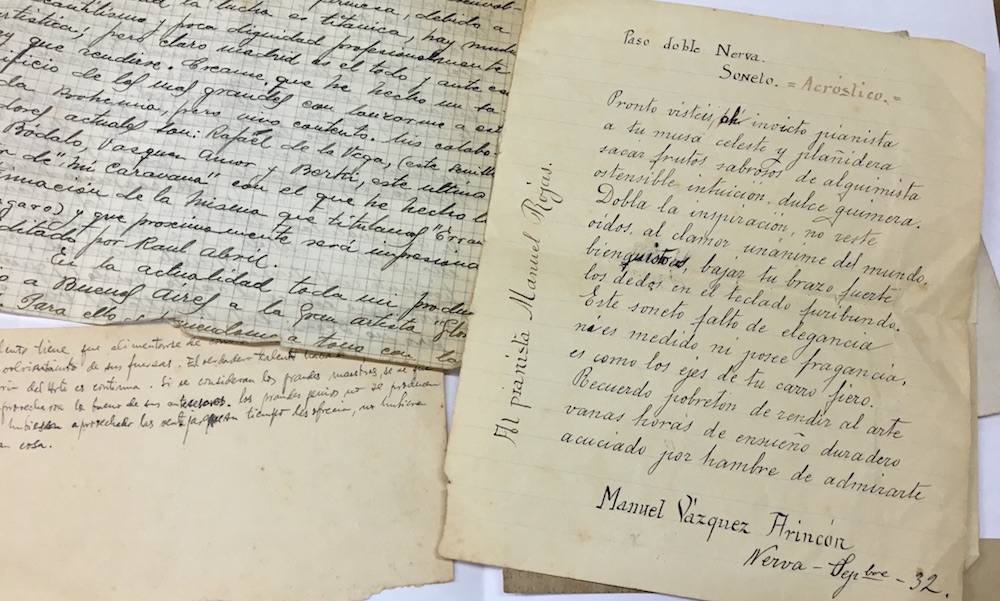 la lucha es titánica, hay mucho
y poca dignidad profesionalmente
pero claro madrid es el todo y ante eso
que rendirse. Créame, que he hecho un sa-
de los mas grandes con lanzarme a esta
Bohemia, pero vivo contento. Mis colabo-
actuales son: Rafael de la Vega, (este sevilla
Bodalo, Vasquez Amor y Bertú, este ultimo
de "Mi Caravana" con el que he hecho la
de la misma que titulamos "Erran
y que proximamente será impresiona
editado por Raul Abril.
En la actualidad toda mi produc
a Buenos Aires a la gran artista "Glo
Para ello
tiene que alimentarse de
de sus fuerzas. El verdadero talento
del Arte es continua. Si se consideran los grandes maestros, se
lo bueno de sus antecesores. Los grandes genios no se producen
aprovechado las ventajas que un tiempo les ofrecia, no hubieran
cosa.
Paso doble Nerva.
Soneto. = Acróstico. =
Al pianista Manuel Rojas.
Pronto visteis, oh invicto pianista
a tu musa celeste y plañidera
sacar frutos sabrosos de alquimista
ostensible intuición, dulce quimera.
Dobla la inspiración, no veste
oidos, al clamor unánime del mundo,
bienquistos, bajar tu brazo fuerte
los dedos en el teclado furibundo.
Este soneto falto de elegancia
ni es medido ni posee fragancia,
es como los ejes de tu carro fiero.
Recuerdo pobretón de rendir al arte
vanas horas de ensueño duradero
acuciado por hambre de admirarte
Manuel Vázquez Arincón
Nerva - Sepbre - 32.